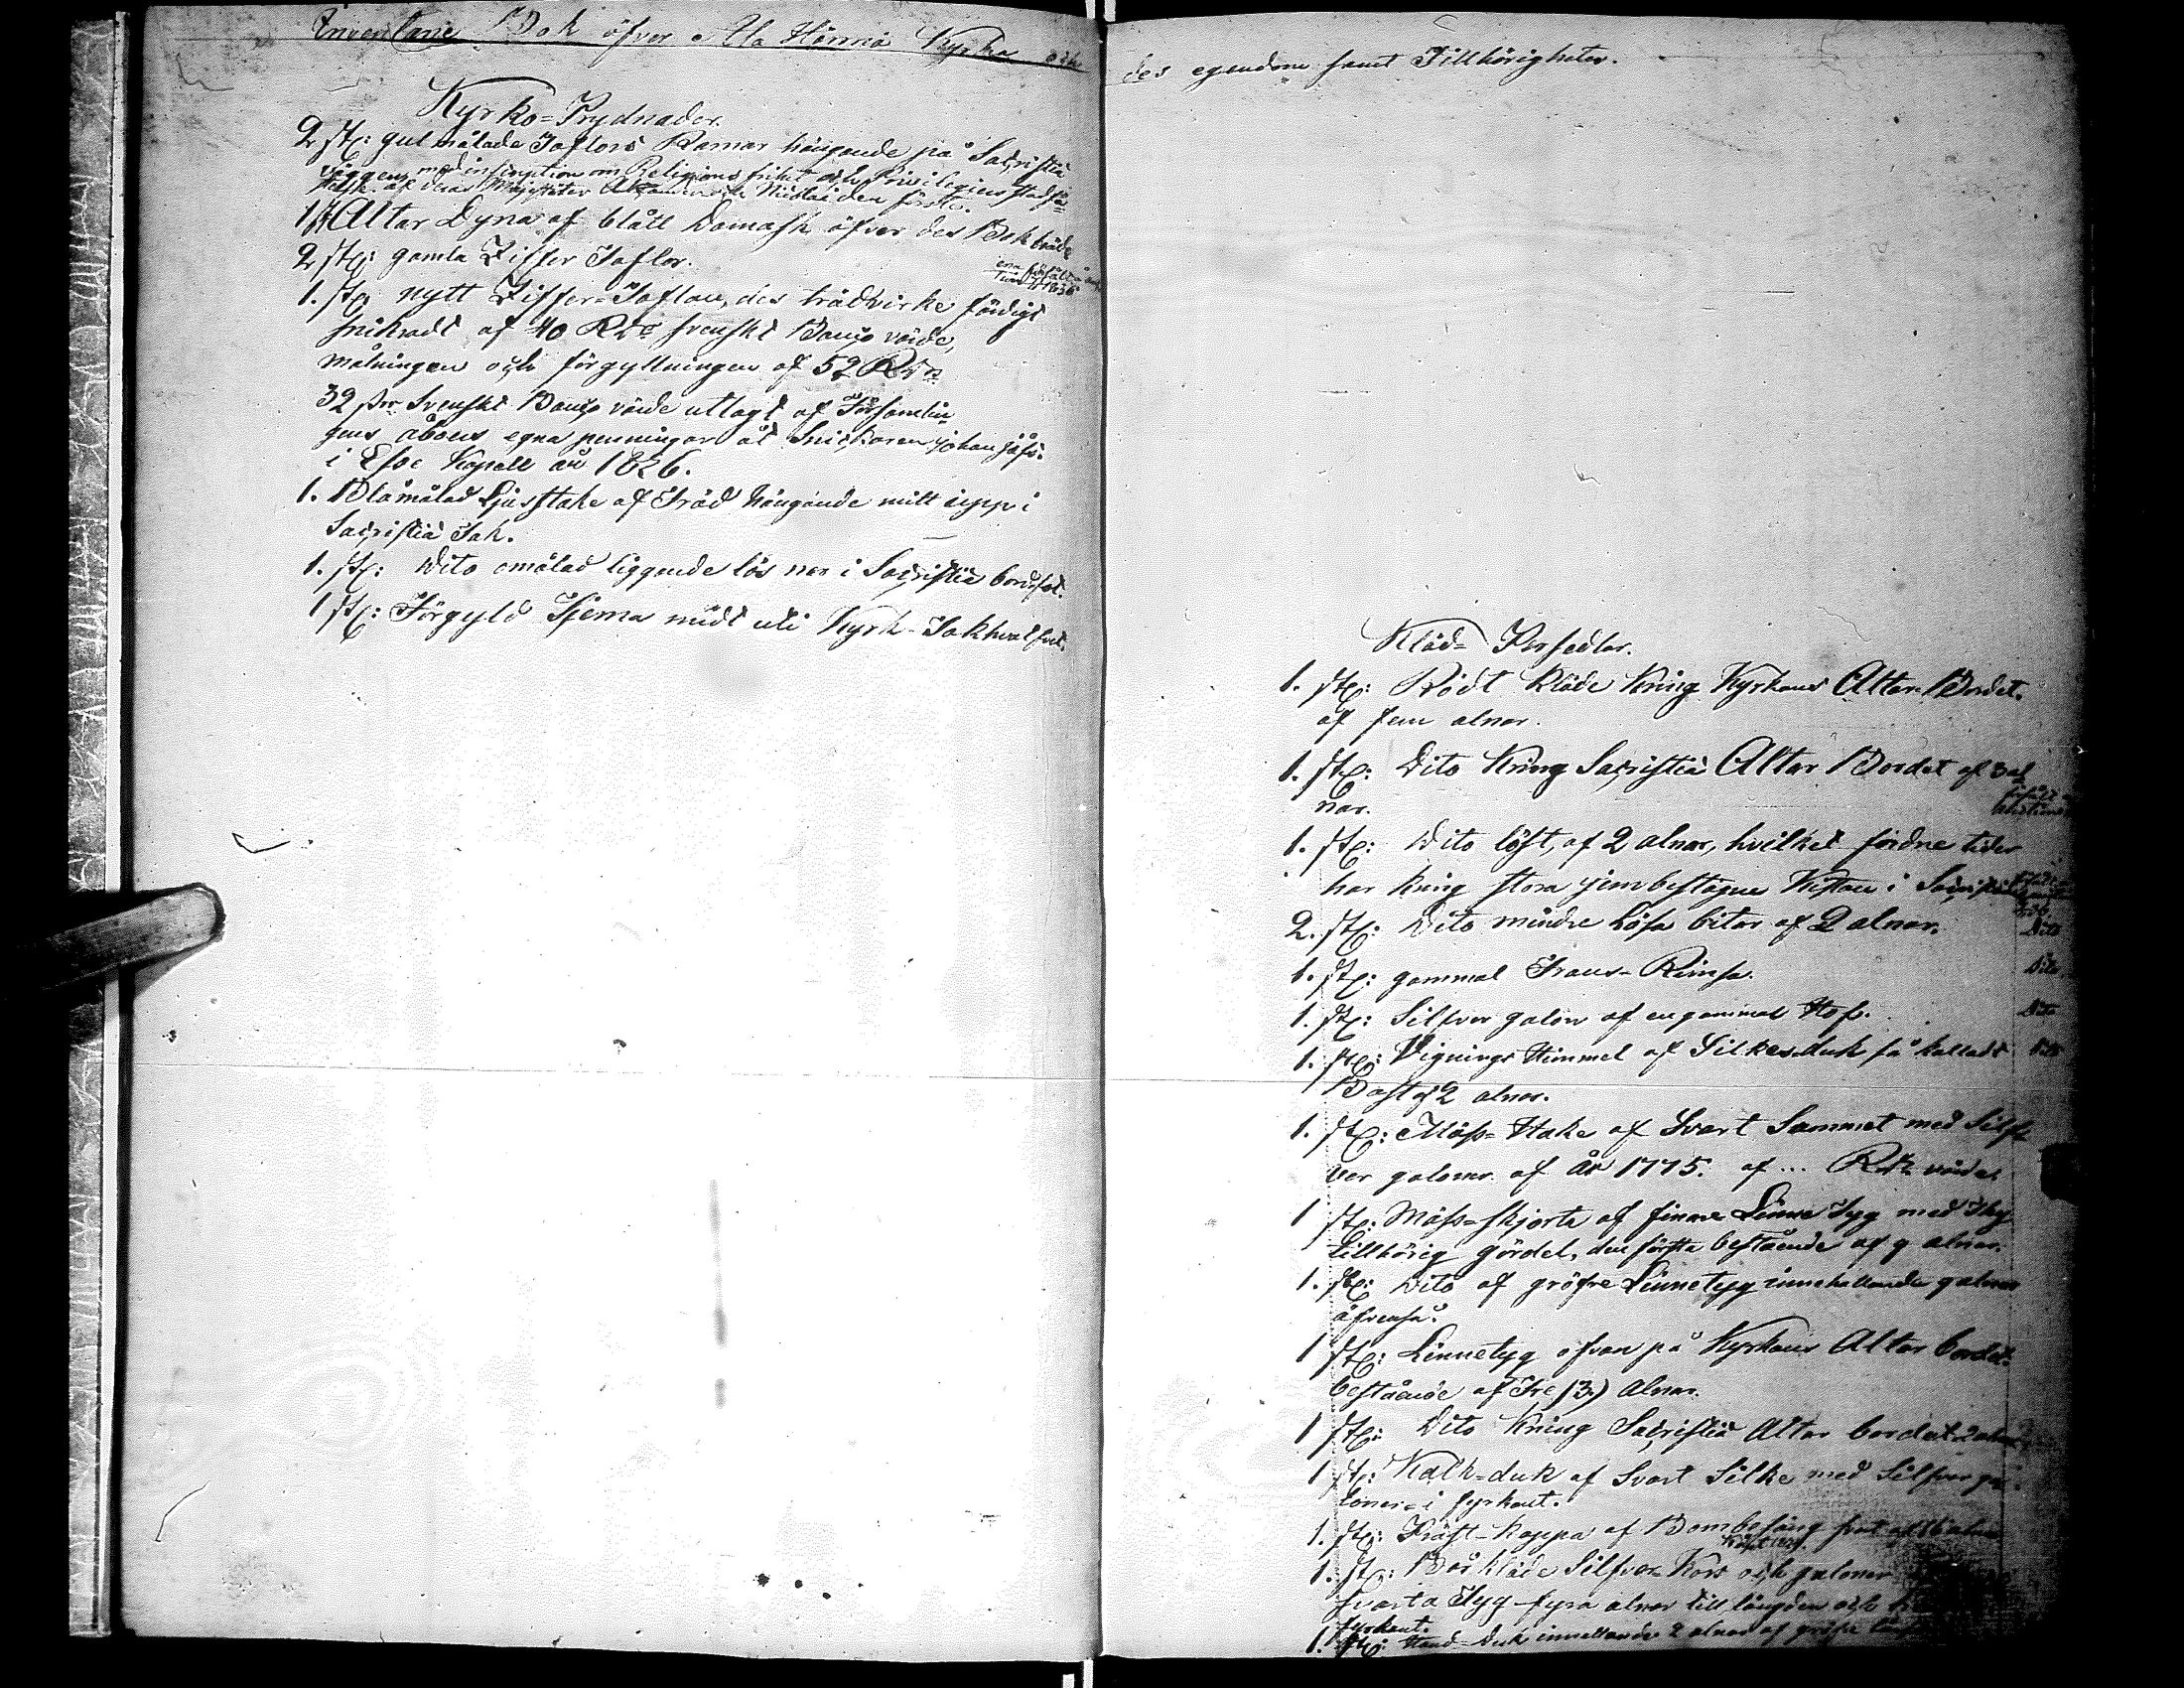 Inventarie Bok öfver Ala Härmä Kyrka och
Kyrko-Prydnader.
2 st: gul målade Taflors Ramar hängande på Sacristiæ
väggen, med inscription om Religions frihet och Privilegiers stadfä-
stelse af deras Majestäter Alexander och Nicolai den förste.
1 st Altar Dyna af blått Damask öfver des Bokbräde
2 st: gamla Ziffer Taflor.
1. st: nytt Ziffer-Taflau, des trädvirke färdigt
snickradt af 40 Rdr svenskt Banco värde,
målningen och förgyllningen af 52 Rdr
32 s. Svenskt Banco värde utlagt af Församlin-
gens åboers egna penningar åt Snickaren Johan
i Esse Kapell år 1826.
1. Blåmålad Ljusstake af Träd hängande mitt upp i
Sacristiæ Tak.
1. st: Dito omålad liggande lös ner i Sacristiæ
1 st: Förgyld Stjerna midt uti Kyrk-Takhvalfvet.
des egendom samt Tillhörigheter.
Kläd-Persedlar.
1. st: Rödt Kläde Kring Kyrkans Altar Bordet.
af fem alnar.
1. st: Dito Kring Sacristiæ Altar Bordet af 3 al
nar.
1. st: Dito löst, af 2 alnar, hvilket fordne tider
har kring stora jernbeslagne Kistan i
2. st: Dito mindre lösa bitar af 2 alnar. Dito
1. st: gammal Frans-Rimsa. Dito
1. st: Silfver galon af en gammal Dito
1. st: Vignings Himmel af Silkesduk så kalladt Dito
Bast af 2 alnar.
1. st: Mäss-Hake af Svart Sammet med Silf-
ver galoner af År 1775. af ... Rdr värde.
1 st: Mäss-skjorta af finare Linne Tyg med
tillhörig gördel, den första bestående af 9 alnar.
1. st: Dito af gröfre Linnetyg innehållande 9 alnar
äfvenså.
1 st: Linnetyg ofvan på Kyrkans Altar bordet
bestående af Tre (3.) Alnar.
1 st: Dito Kring Sacristiæ Altar bordet 2
1 st: Kalk-duk af Svart Silke med Silfver ga-
loner i fyrkant.
1. st: kappa af
1. st: Bår kläde Silfver-Kors och galoner
svarta Tyg fyra alnar till längden och
fyrkant.
1. st: Hand-Duk innehållande 2 alnar af gröfre